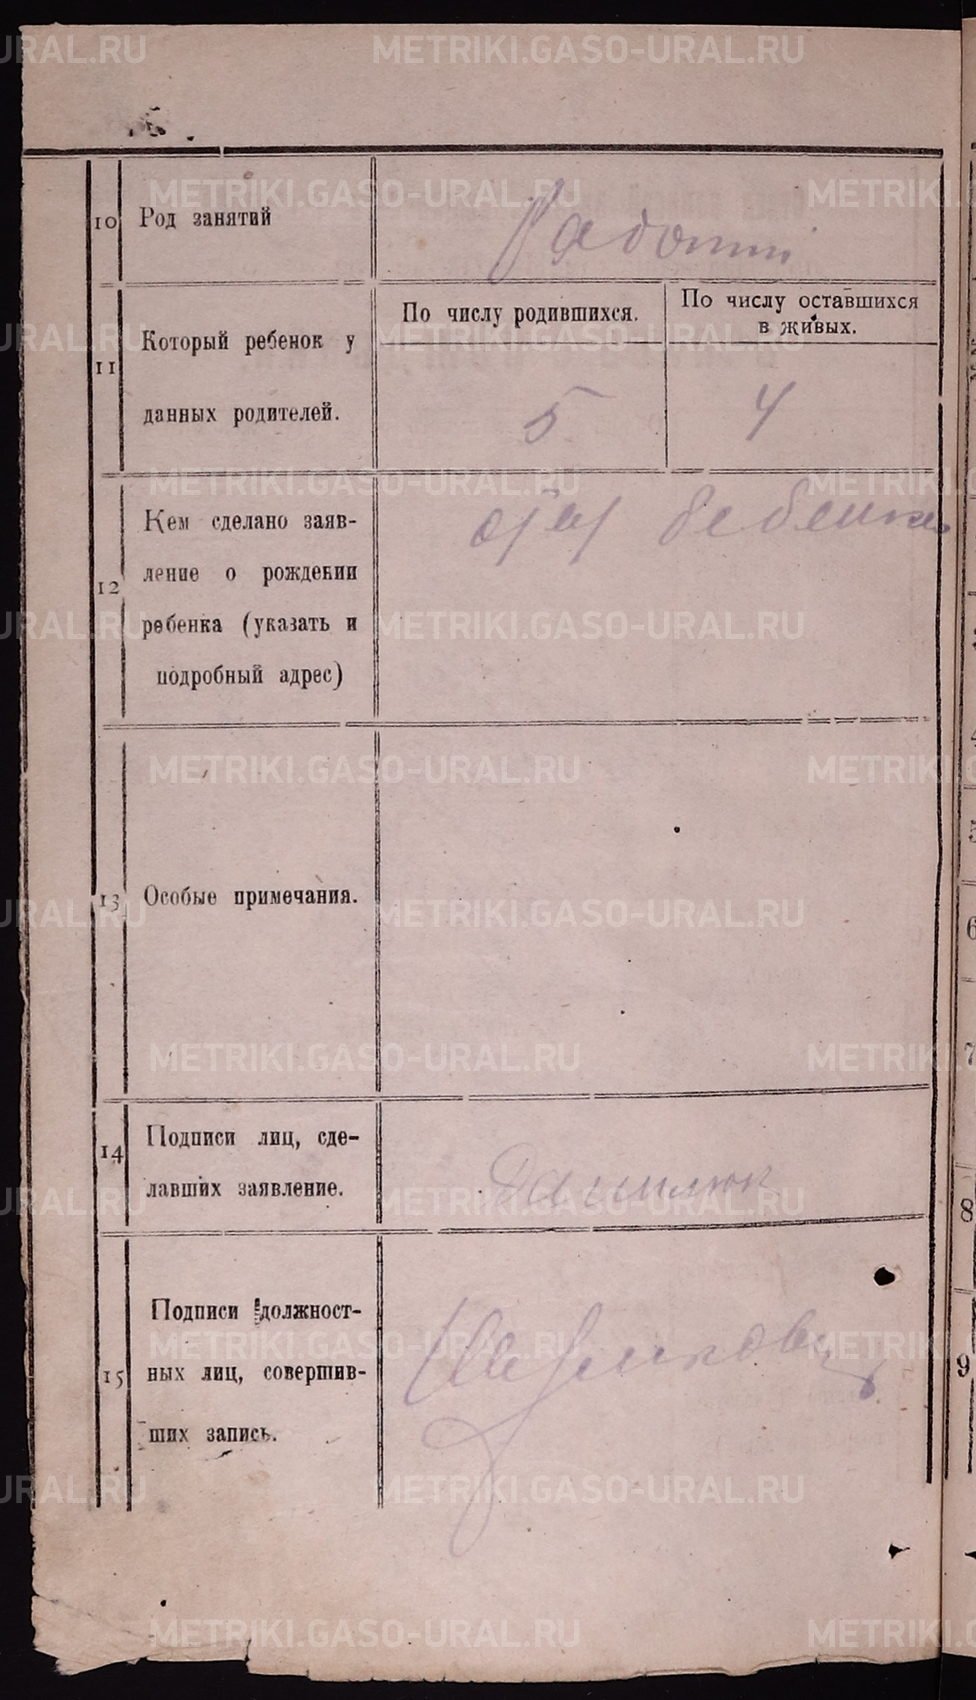 METRIKI.GASO-URAL.RU
10 Род занятий
11 Который ребенок у
данных родителей.
По числу родившихся.
По числу оставшихся
в живых.
5
4
12 Кем сделано заяв-
ление о рождении
ребенка (указать и
подробный адрес)
отец ребенка
13 Особые примечания.
14 Подписи лиц, сде-
лавших заявление.
Данилюк
15 Подписи должност-
ных лиц, совершив-
ших запись.
6
7
8
9